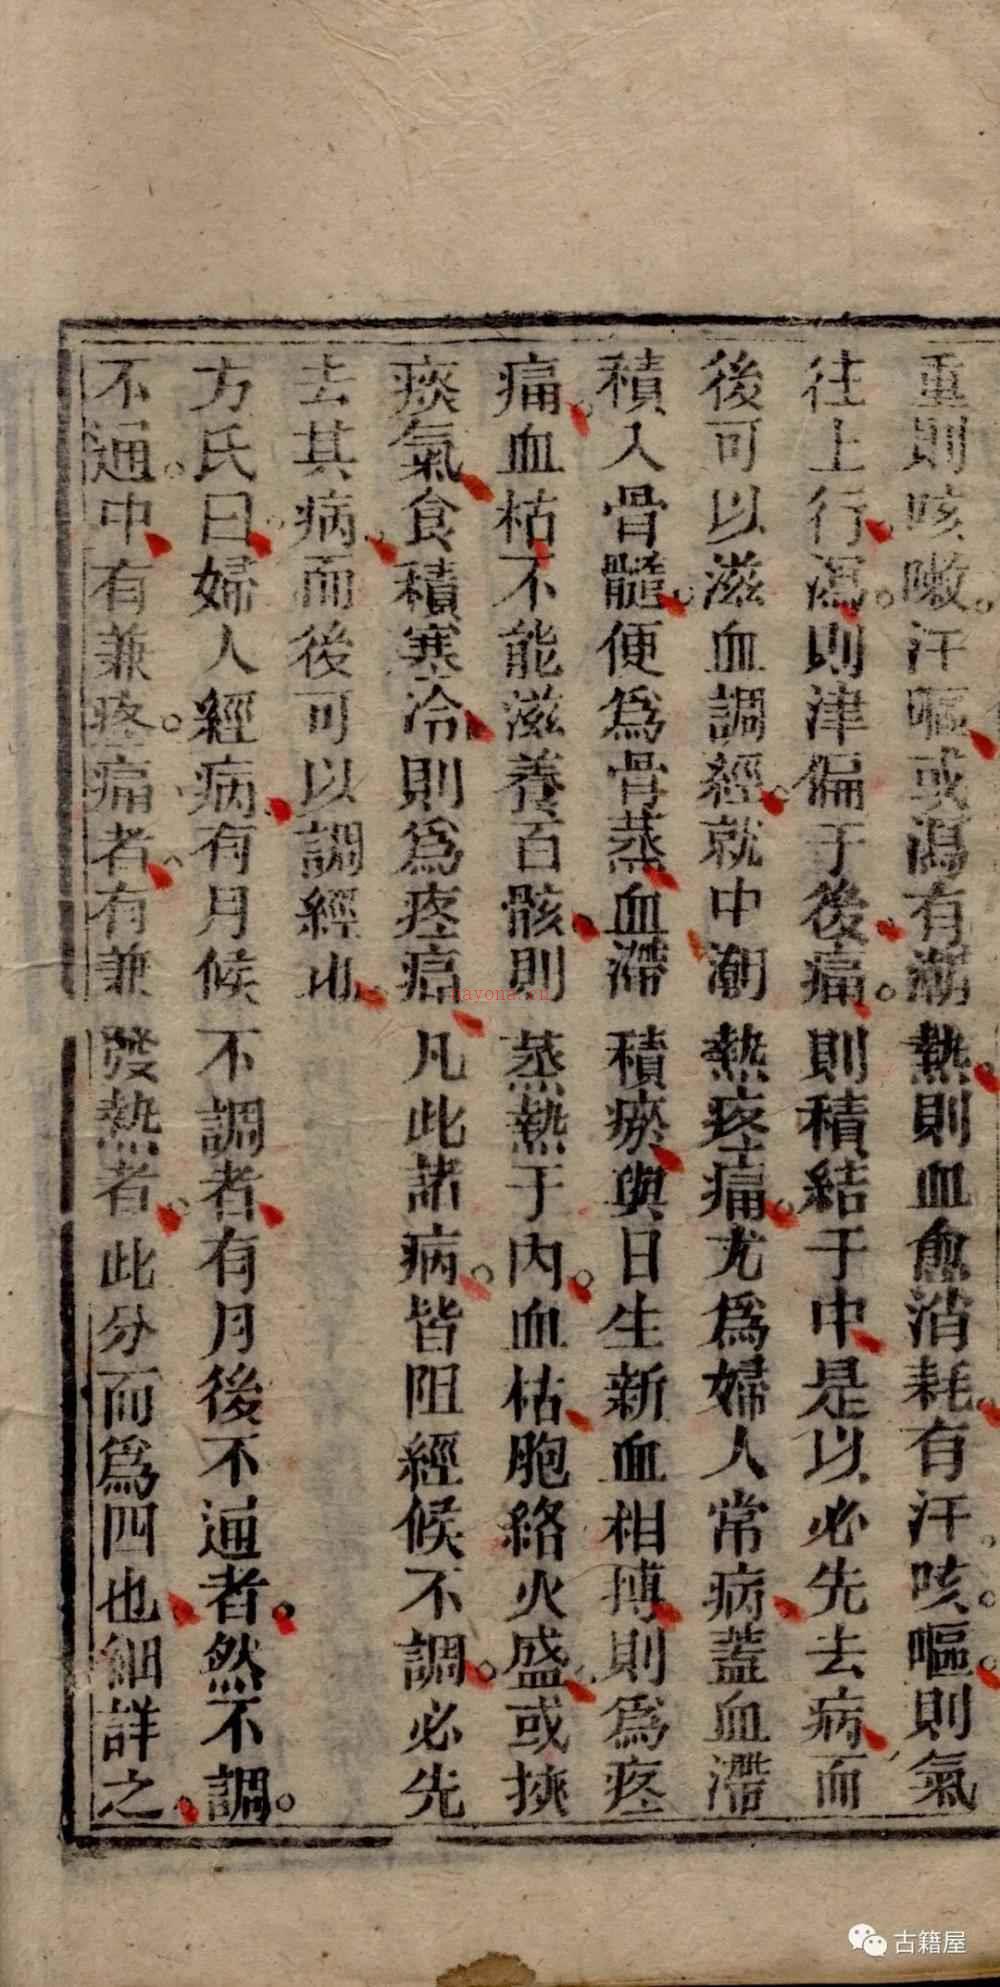 重則咳嗽汗嘔或瀉有潮熱則血愈消耗有汗咳嘔則氣
往上行瀉則津偏于後痛則積結于中是以必先去病而
後可以滋血調經就中潮熱疼痛尤爲婦人常病蓋血滯
積入骨髓便爲骨蒸血滯積瘀與日生新血相搏則爲疼
痛血枯不能滋養百骸則蒸熱于內血枯胞絡火盛或挾
痰氣食積寒冷則爲疼痛凡此諸病皆阻經候不調必先
去其病而後可以調經也
方氏曰婦人經病有月候不調者有月後不通者然不調
不通中有兼疼痛者有兼發熱者此分而爲四也細詳之
nayona.cn
古籍屋